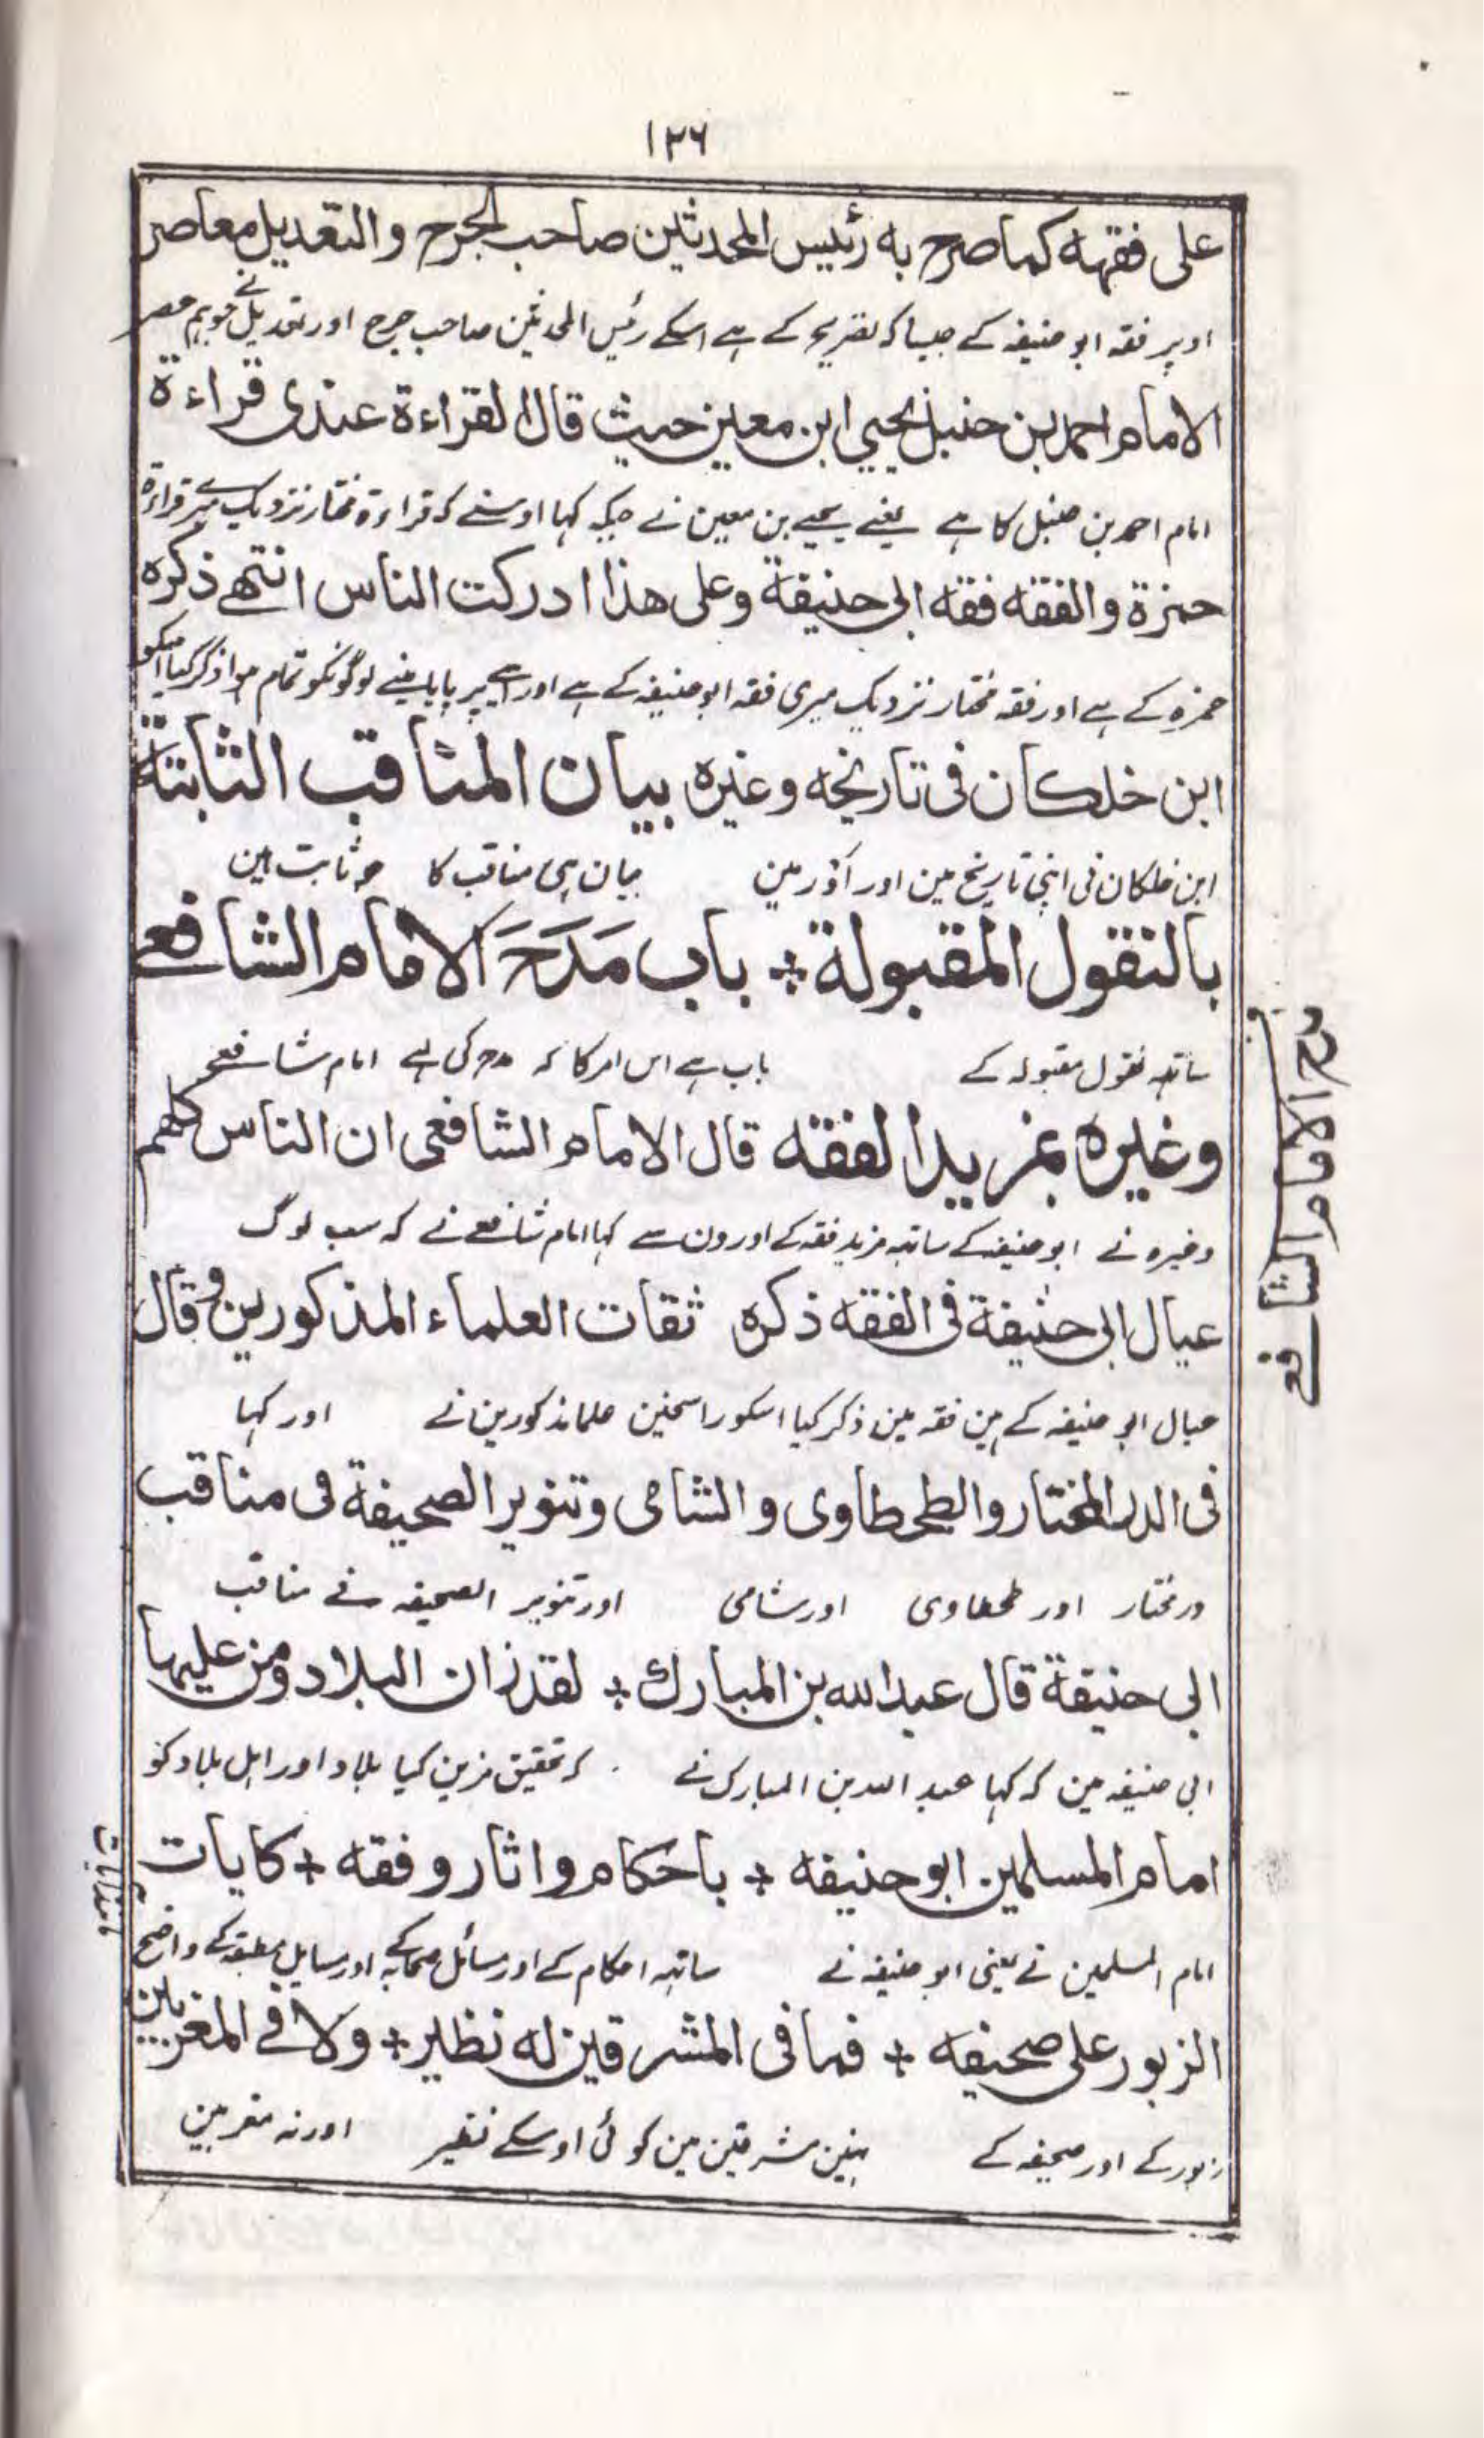 ١٢٦
على فقهه كما صرح به رئيس المحدثين صاحب الجرح والتعديل معاصر
اوپر فقہ ابو حنیفہ کے جیسا کہ تصریح کے ہے اسکے رئیس المحدثین صاحب جرح اور تعدیل نے جو ہم عصر
الامام احمد بن حنبل يحيي ابن معين حيث قال القراءة عندى قراءة
امام احمد بن حنبل کا ہے یعنے یحیے بن معین نے جبکہ کہا اوسنے کہ قراءۃ مختار نزدیک میرے قراءۃ
حمزة والفقه فقه ابى حنيفة وعلى هذا ادركت الناس انتهے ذكره
حمزہ کے ہے اور فقہ مختار نزدیک میری فقہ ابو حنیفہ کے ہے اور اسے پر پایا مینے لوگونکو تمام ہوا ذکر کیا اسکو
ابن خلكان فى تاريخه وغيره بيان المناقب الثابتة
ابن خلکان نی اپنی تاریخ مین اور اَوْر مین بیان ہی مناقب کا جو ثابت ہین
بالنقول المقبولة ÷ باب مَدَحَ الامام الشافعے
ساتھ نقول مقبولہ کے باب ہے اس امر کا کہ مدح کی ہے امام شافعے
وغيره بمزيد الفقه قال الامام الشافعى ان الناس كلهم
وغیرہ نے ابو حنیفہ کے ساتھ مزید فقہ کے اورون سے کہا امام شافعے نے کہ سب لوگ
عيال ابى حنيفة فى الفقه ذكره ثقات العلماء المذكورين وقال
عیال ابو حنیفہ کے ہین فقہ مین ذکر کیا اسکو راسخین علما مذکورین نے اور کہا
فى الدر المختار والطحطاوى والشامى وتنوير الصحيفة فى مناقب
در مختار اور طحطاوی اور شامی اور تنویر الصحیفہ فے مناقب
ابى حنيفة قال عبد الله بن المبارك ÷ لقد زان البلاد ومن عليها
ابی حنیفہ مین کہ کہا عبد اللہ بن المبارک نے کہ تحقیق مزین کیا بلاد اور اہل بلاد کو
امام المسلمين ابو حنيفه ÷ باحكام واثار وفقه ÷ كايات
امام المسلمین نے یعنی ابو حنیفہ نے ساتھ احکام کے اور مسائل صحابہ کے اور مسایل فقہ کے واضح
الزبور على صحيفه ÷ فما فى المشرقين له نظير ÷ ولا فے المغربين
زبور کے اور صحیفہ کے نہین مشرقین مین کوئی اوسکے نظیر اور نہ مغربین
مدح الامام الشافعے